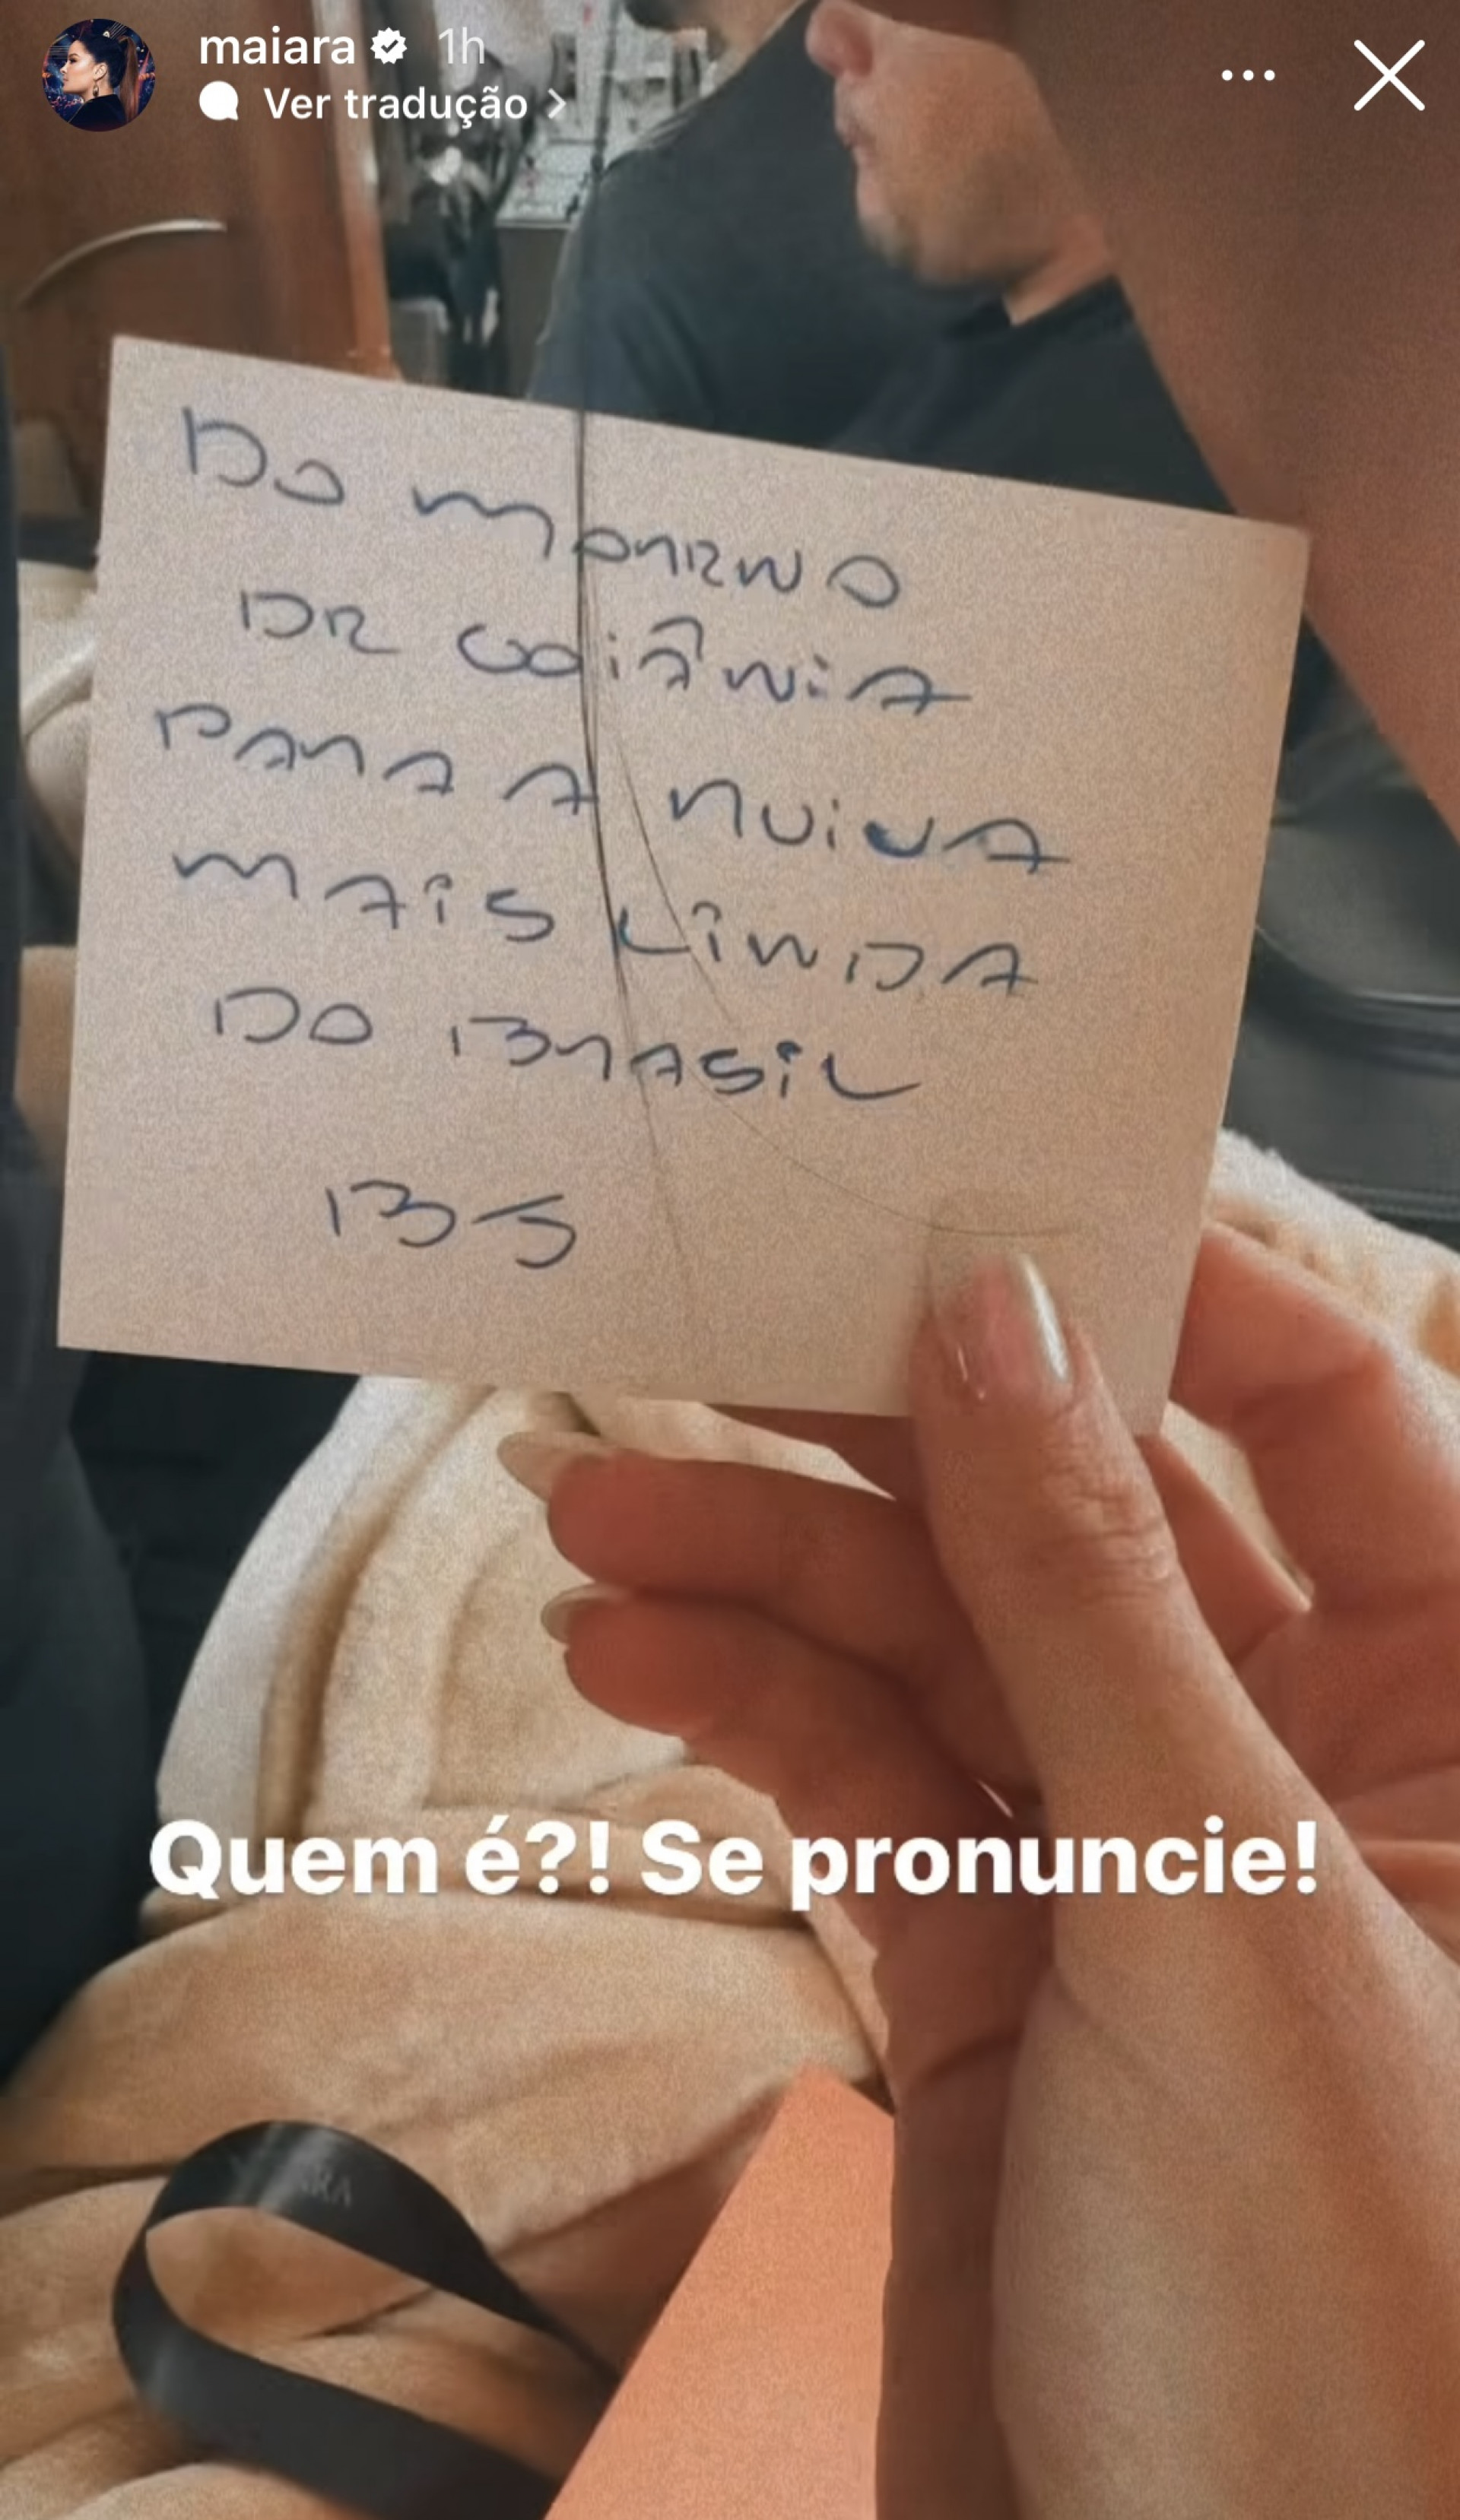 maiara 1h
Ver tradução
DO MORENO
DE GOIÂNIA
PARA A RUIVA
MAIS LINDA
DO BRASIL
BJ
Quem é?! Se pronuncie!